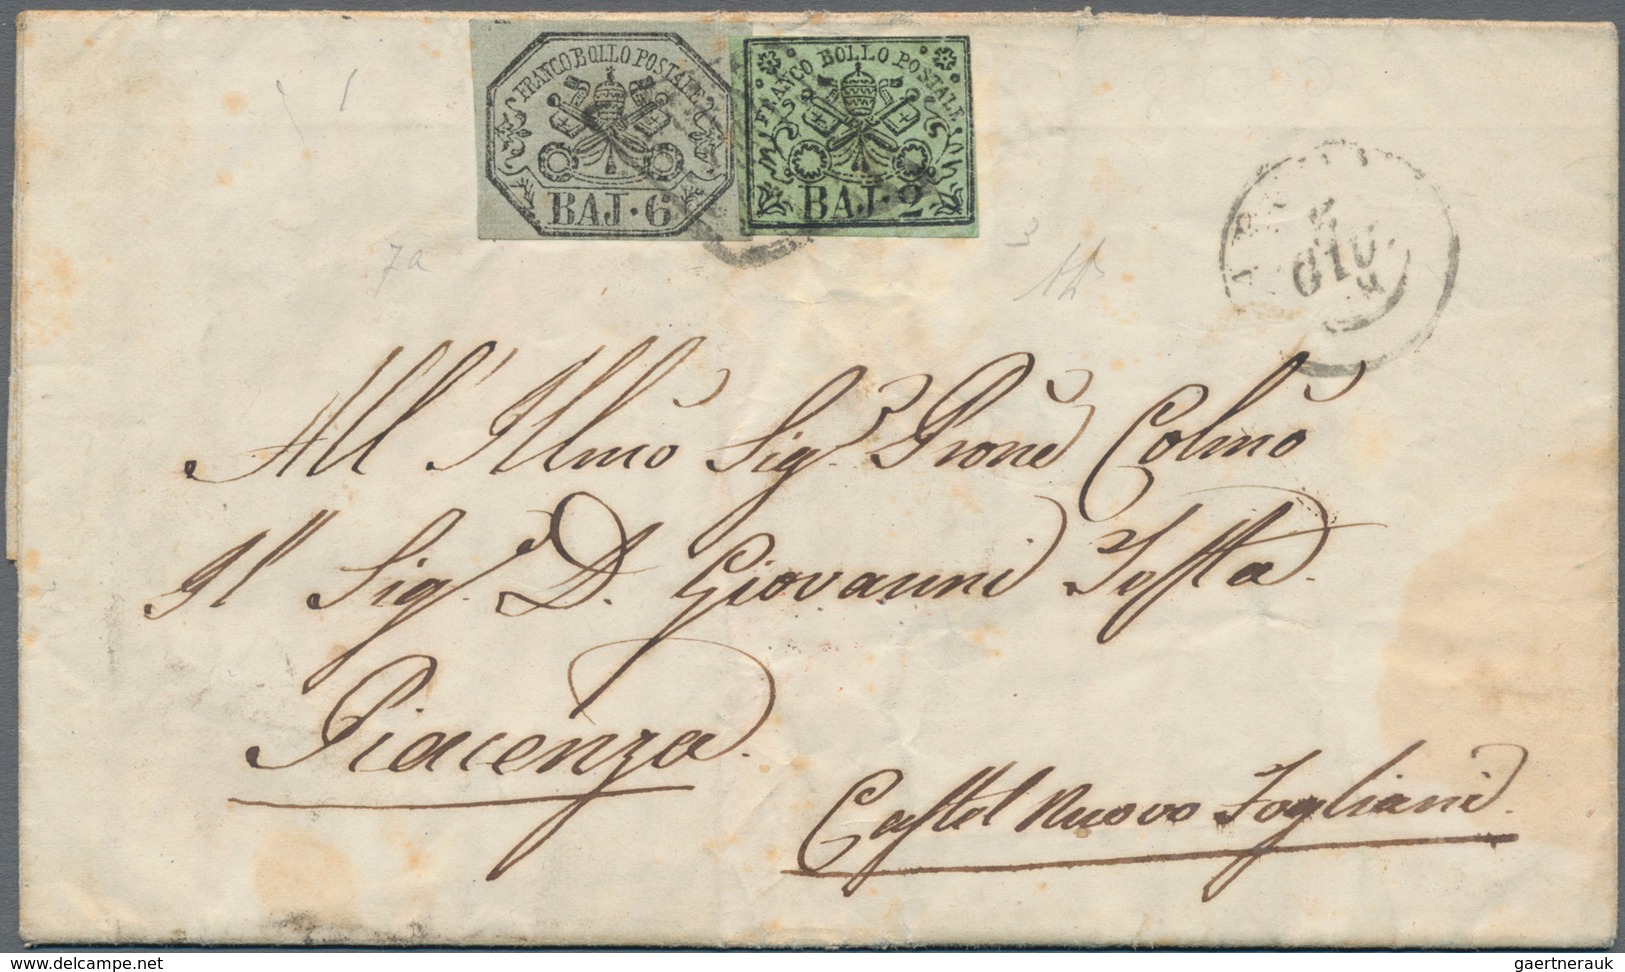 FRANCO BOLLO POSTALE
BAJ·6
FRANCO BOLLO POSTALE
BAJ·2
5
GIU.
7a
3
All' Illmo Sigr. Prone Colmo
Il Sigr. D. Giovanni Testa.
Piacenza.
Castel Nuovo Fogliani.
www.delcampe.net
gaertnerauk